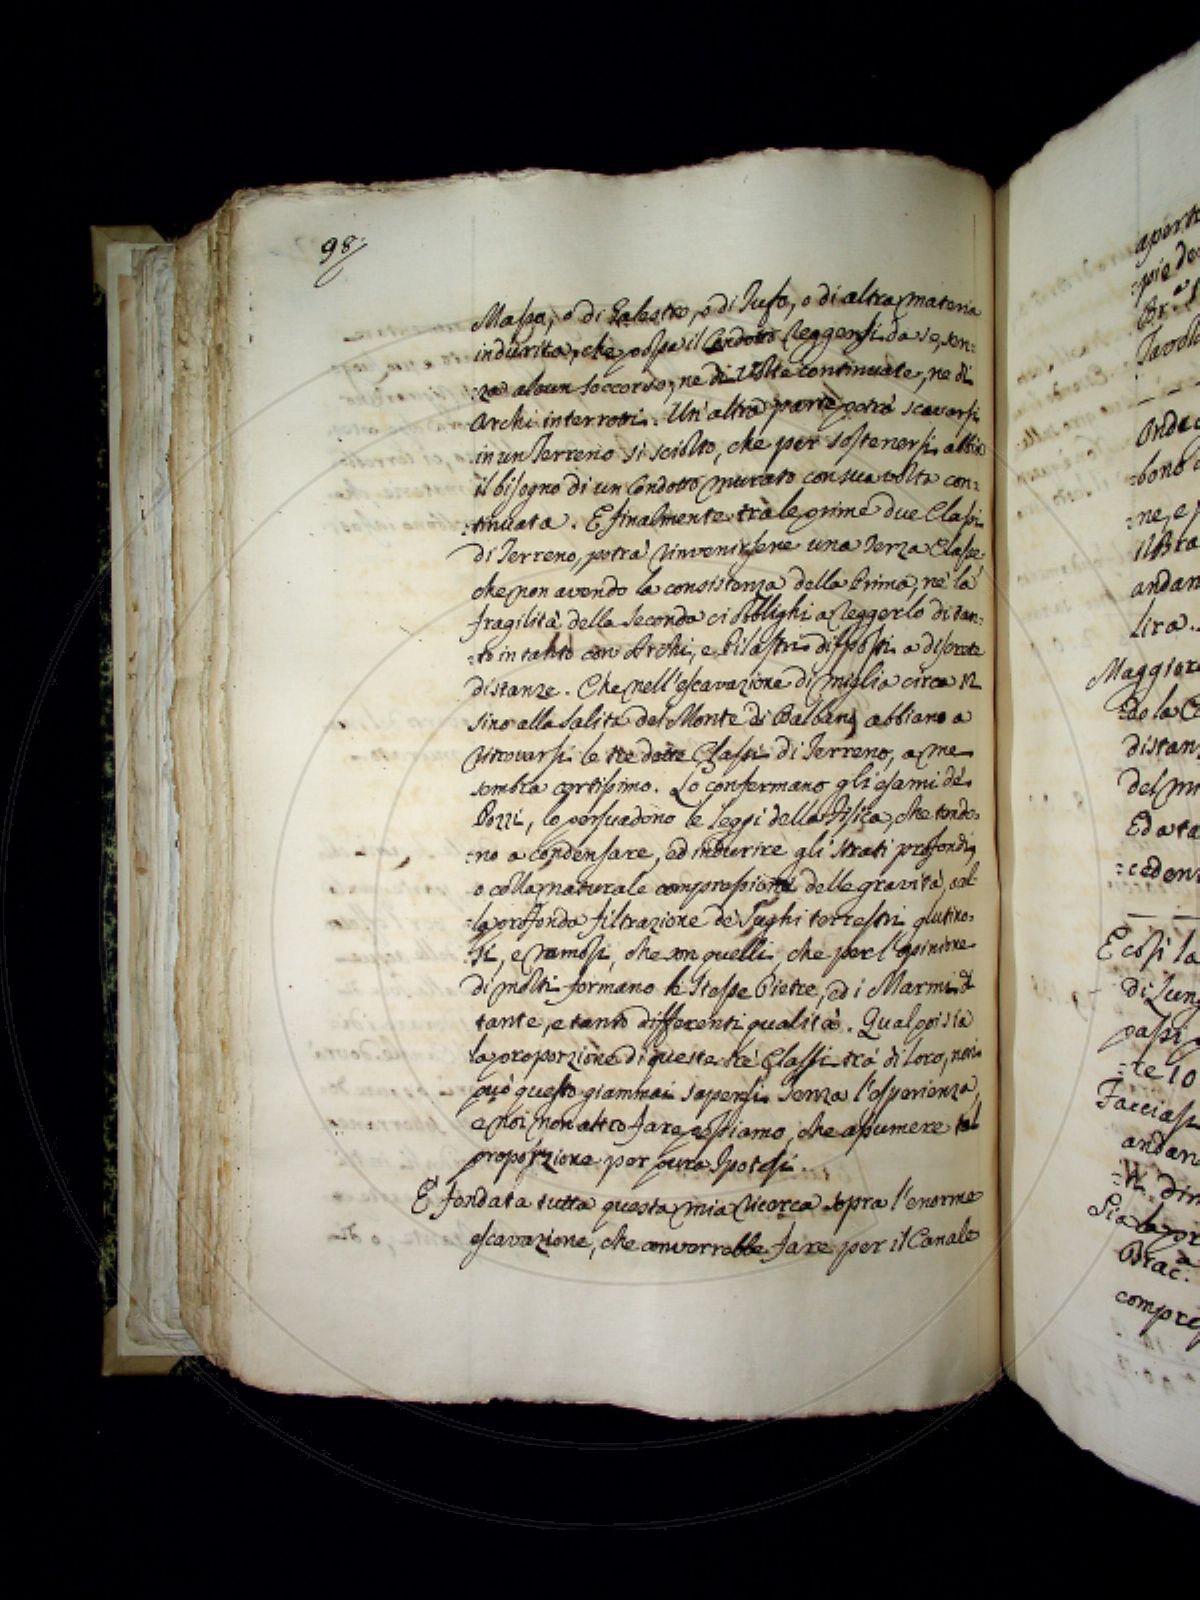 98.
Massa, o di Galestro, o di Tufo, o di altra materia
indurita, che possa il Condotto reggersi da se, sen:
:za alcun soccorso, ne di Volte continuate, ne di
Archi interrotti. Un'altra parte potrà scavarsi
in un Terreno si sciolto, che per sostenersi abbia
il bisogno di un Condotto murato con sua volta con:
:tinuata. E finalmente trà le prime due Classi
di Terreno, potrà rinvenirsene una Terza Classe
che non avendo la consistenza della Prima, ne la
fragilità della Seconda ci obblighi a reggerlo di tan:
:to in tanto con Archi, e Pilastri disposti a discrete
distanze. Che nell'escavazione di miglia circa 12
sino alla Salita del Monte di Balbano abbiano a
ritrovarsi le tre dette Classi di Terreno, a me
sembra certissimo. Lo confermano gli esami de'
Pozzi, lo persuadono le Leggi della Fisica, che tendo:
:no a condensare, ed indurire gli Strati profondi,
o colla naturale compressione delle gravità, col:
:la profonda filtrazione de' Sughi terrestri glutino:
:si, e ramosi, che son quelli, che per l'opinione
di molti formano le Stesse Pietre, ed i Marmi di
tante, e tanto differenti qualità. Qual poi sia
la proporzione di queste trè Classi trà di loro, non
può questo giammai sapersi senza l'esperienza,
e noi non altro fare possiamo, che assumere tal
proporzione per pura Ipotesi.
E' fondata tutta questa mia ricerca sopra l'enorme
escavazione, che converrebbe fare per il Canale
aperto
Br.a
Onde
:bono
:ne, e
il Bra
andan
lira.
Maggior
:do la
distan
del
Ed a ta
:ceden
E così la
di Lung
passi
:te 10
Facciasi
andan
Sia la por
Brac.a
compre